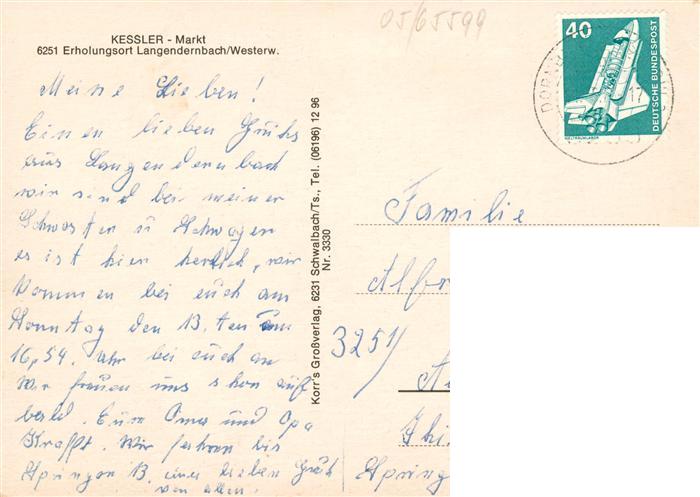 05/65599
KESSLER - Markt
6251 Erholungsort Langendernbach/Westerw.
Meine Lieben!
Einen lieben Gruhs
aus Langendernbach
wir sind bei meiner
Schwester u Schwager
es ist hier herlich, wir
kommen bei euch am
Sonntag den 13. ten um
16,54. Uhr bei euch an
Wir freuen uns schon auf
bald. Eure Oma und Opa
Krafft. Wir fahren bis
Springe 13. einen lieben Gruß
von allen.
Korr's Großverlag, 6231 Schwalbach/Ts., Tel. (06196) 12 96
Nr. 3330
40
DEUTSCHE BUNDESPOST
WELTRAUMLABOR
DORN
17
Familie
Alfr
3251
Spring